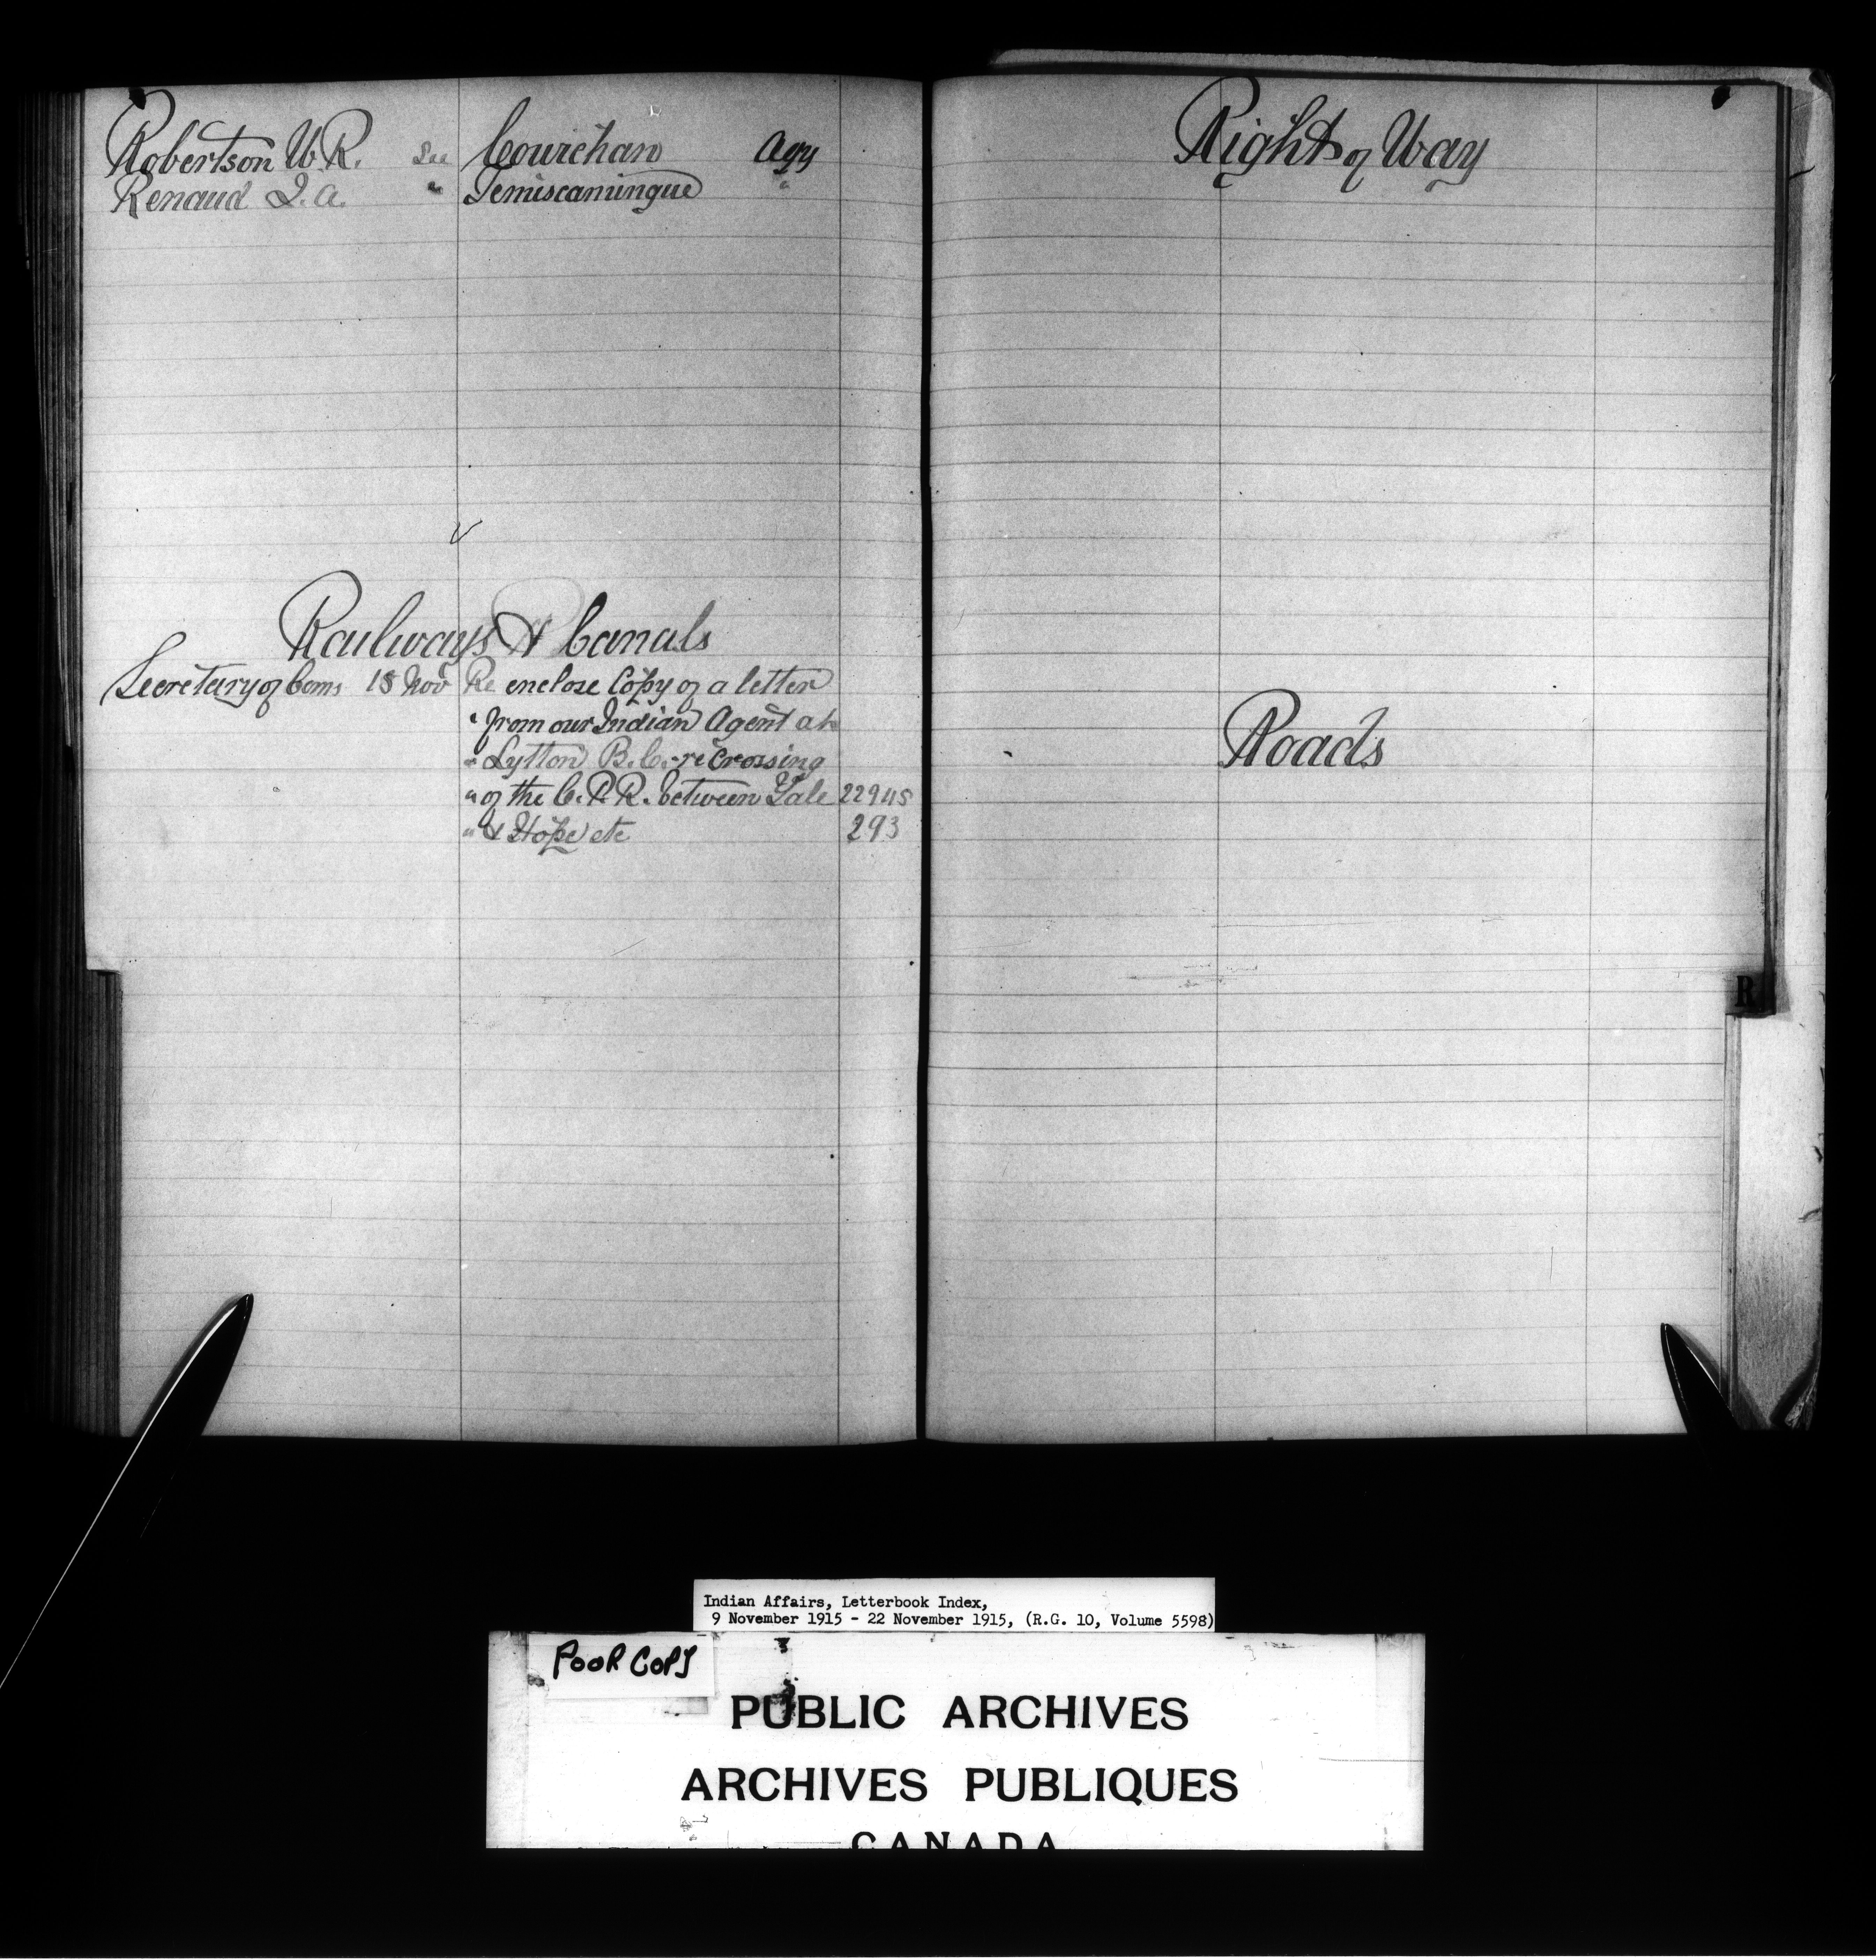 Robertson W. R. See Cowichan Agy
Renaud J. A. " Temiscamingue "
Railways & Canals
Secretary of Coms 18 Nov Re enclose Copy of a letter
" from our Indian Agent at
" Lytton B.C. re crossing
" of the C.P.R. between Yale 22945
" & Hope etc 293
Right of Way
Roads
R
Indian Affairs, Letterbook Index,
9 November 1915 - 22 November 1915, (R.G. 10, Volume 5598)
POOR COPY
PUBLIC ARCHIVES
ARCHIVES PUBLIQUES
CANADA